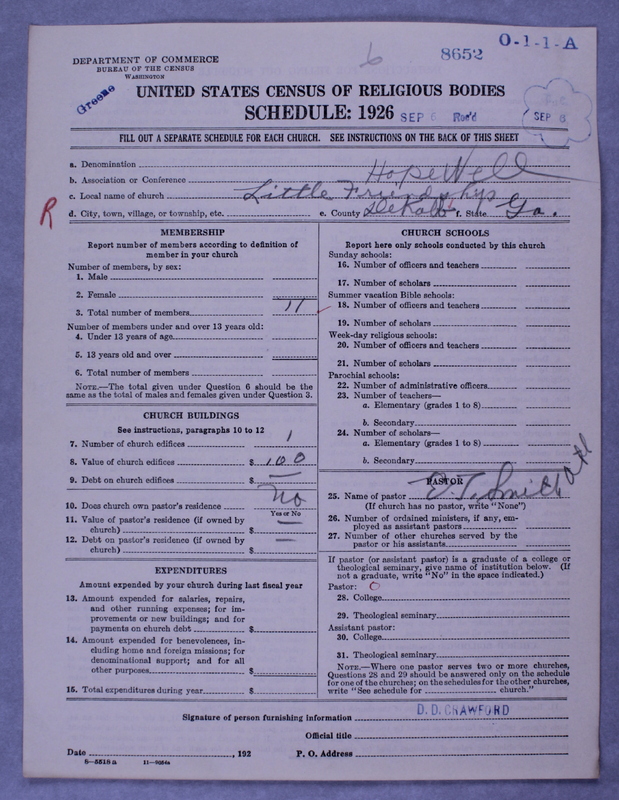 DEPARTMENT OF COMMERCE
BUREAU OF THE CENSUS
WASHINGTON
Greene
6
8652
O-1-1-A
UNITED STATES CENSUS OF RELIGIOUS BODIES
SCHEDULE: 1926
SEP 6 Rec'd
SEP 6
FILL OUT A SEPARATE SCHEDULE FOR EACH CHURCH. SEE INSTRUCTIONS ON THE BACK OF THIS SHEET
a. Denomination
b. Association or Conference Hopewell
c. Local name of church Little Friendship
R
d. City, town, village, or township, etc. e. County DeKalb f. State Ga.
MEMBERSHIP
Report number of members according to definition of
member in your church
Number of members, by sex:
1. Male
2. Female
3. Total number of members 11
Number of members under and over 13 years old:
4. Under 13 years of age
5. 13 years old and over
6. Total number of members
NOTE.—The total given under Question 6 should be the
same as the total of males and females given under Question 3.
CHURCH BUILDINGS
See instructions, paragraphs 10 to 12
7. Number of church edifices 1
8. Value of church edifices $ 100
9. Debt on church edifices $ —
10. Does church own pastor's residence no
Yes or No
11. Value of pastor's residence (if owned by
church) $ —
12. Debt on pastor's residence (if owned by
church) $ —
EXPENDITURES
Amount expended by your church during last fiscal year
13. Amount expended for salaries, repairs,
and other running expenses; for im-
provements or new buildings; and for
payments on church debt $
14. Amount expended for benevolences, in-
cluding home and foreign missions; for
denominational support; and for all
other purposes $
15. Total expenditures during year $
CHURCH SCHOOLS
Report here only schools conducted by this church
Sunday schools:
16. Number of officers and teachers
17. Number of scholars
Summer vacation Bible schools:
18. Number of officers and teachers
19. Number of scholars
Week-day religious schools:
20. Number of officers and teachers
21. Number of scholars
Parochial schools:
22. Number of administrative officers
23. Number of teachers—
a. Elementary (grades 1 to 8)
b. Secondary
24. Number of scholars—
a. Elementary (grades 1 to 8)
b. Secondary
PASTOR
25. Name of pastor E. T. Smith Atl
(If church has no pastor, write "None")
26. Number of ordained ministers, if any, em-
ployed as assistant pastors
27. Number of other churches served by the
pastor or his assistants
If pastor (or assistant pastor) is a graduate of a college or
theological seminary, give name of institution below. (If
not a graduate, write "No" in the space indicated.)
Pastor:
28. College
29. Theological seminary
Assistant pastor:
30. College
31. Theological seminary
NOTE.—Where one pastor serves two or more churches,
Questions 28 and 29 should be answered only on the schedule
for one of the churches; on the schedules for the other churches,
write "See schedule for church."
Signature of person furnishing information D. D. CRAWFORD
Official title
Date , 192 P. O. Address
8—5518 a 11—9054a